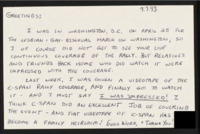 9.7.93
GREETINGS:
I WAS IN WASHINGTON, D.C. ON APRIL 25 FOR
THE LESBIAN-GAY-BISEXUAL MARCH ON WASHINGTON, SO
I OF COURSE DID NOT GET TO SEE YOUR LIVE
CONTINUOUS COVERAGE OF THE RALLY. BUT RELATIVES
AND FRIENDS BACK HOME WHO DID WATCH IT WERE
IMPRESSED WITH THE COVERAGE.
LAST WEEK, I WAS GIVEN A VIDEOTAPE OF THE
C-SPAN RALLY COVERAGE, AND FINALLY GOT TO WATCH
IT - AND I MUST SAY I WAS IMPRESSED! I
THINK C-SPAN DID AN EXCELLENT JOB OF COVERING
THE EVENT - AND THAT VIDEOTAPE OF C-SPAN HAS
BECOME A FAMILY HEIRLOOM! GOOD WORK & THANK YOU